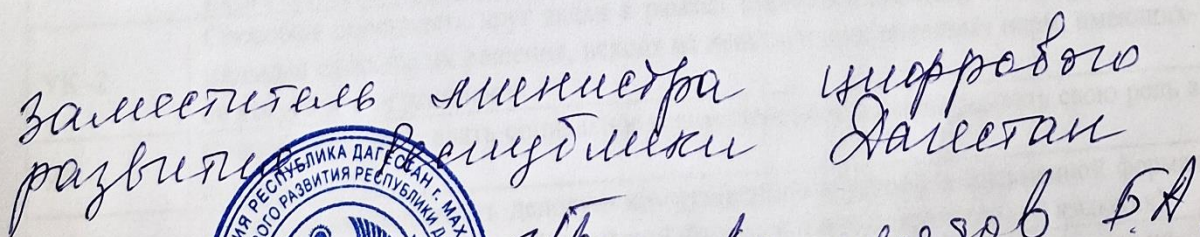 заместитель министра цифрового
развития Республики Дагестан
ИЯ РЕСПУБЛИКА ДАГЕСТАН г. МАХ
ОГО РАЗВИТИЯ РЕСПУБЛИКИ Д
Б.А